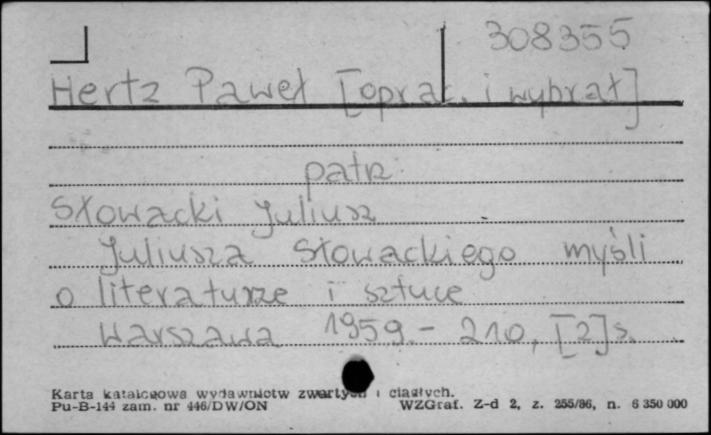 308355
Hertz Paweł [oprac. i wybrał]
patrz
Słowacki Juliusz
Juliusza Słowackiego myśli
o literaturze i sztuce
Warszawa 1959.- 210, [2]s.
Karta katalogowa wydawnictw zwartych i ciągłych.
Pu-B-144 zam. nr 446/DW/ON WZGraf. Z-d 2, z. 255/86, n. 6 350 000